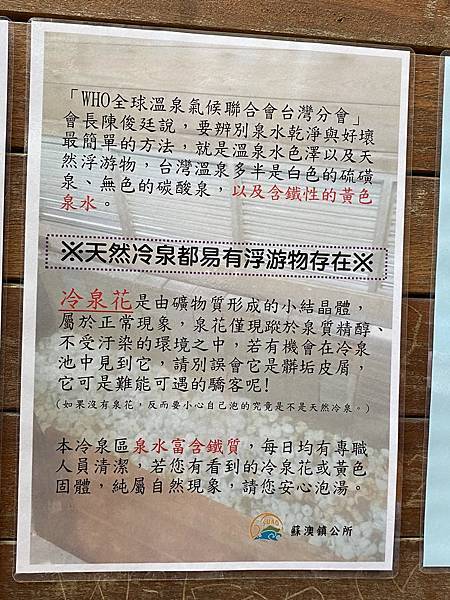 「WHO全球溫泉氣候聯合會台灣分會」
會長陳俊廷說，要辨別泉水乾淨與好壞
最簡單的方法，就是溫泉水色澤以及天
然浮游物，台灣溫泉多半是白色的硫磺
泉、無色的碳酸泉，以及含鐵性的黃色
泉水。
※天然冷泉都易有浮游物存在※
冷泉花是由礦物質形成的小結晶體，
屬於正常現象，泉花僅現蹤於泉質精醇、
不受汙染的環境之中，若有機會在冷泉
池中見到它，請別誤會它是髒垢皮屑，
它可是難能可遇的驕客呢!
(如果沒有泉花，反而要小心自己泡的究竟是不是天然冷泉。)
本冷泉區泉水富含鐵質，每日均有專職
人員清潔，若您有看到的冷泉花或黃色
固體，純屬自然現象，請您安心泡湯。
蘇澳鎮公所